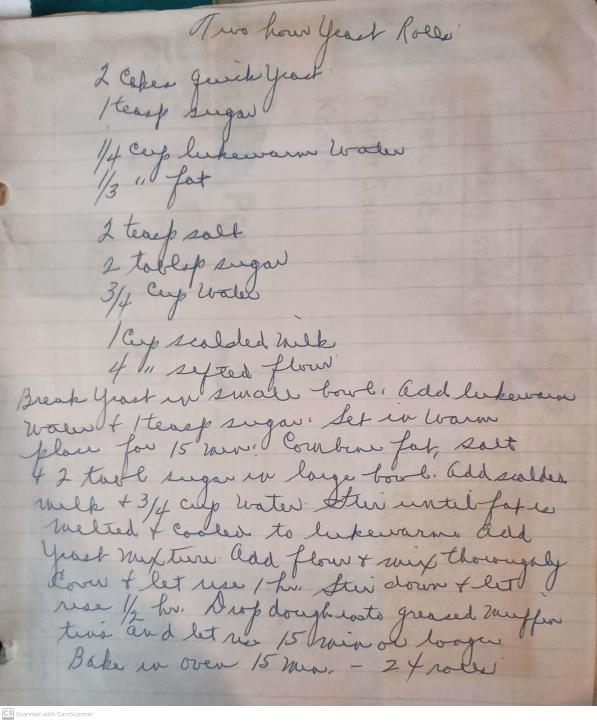 Two hour Yeast Rolls
2 Cakes quick Yeast
1 teasp sugar
1/4 cup lukewarm Water
1/3 " fat
2 teasp salt
2 tablsp sugar
3/4 Cup Water
1 Cup scalded milk
4 " syfted flour
Break Yeast in small bowl. Add lukewarm
Water & 1 teasp sugar. Set in Warm
place for 15 min. Combine fat, salt
& 2 tabl sugar in large bowl. Add scalded
milk & 3/4 cup Water. Stir until fat is
melted & cooled to lukewarm. Add
Yeast Mixture. Add flour & mix thoroughly
Cover & let rise 1 hr. Stir down & let
rise 1/2 hr. Drop dough into greased Muffin
tins and let rise 15 min or longer
Bake in oven 15 Min. - 24 rolls
CS Scanned with CamScanner